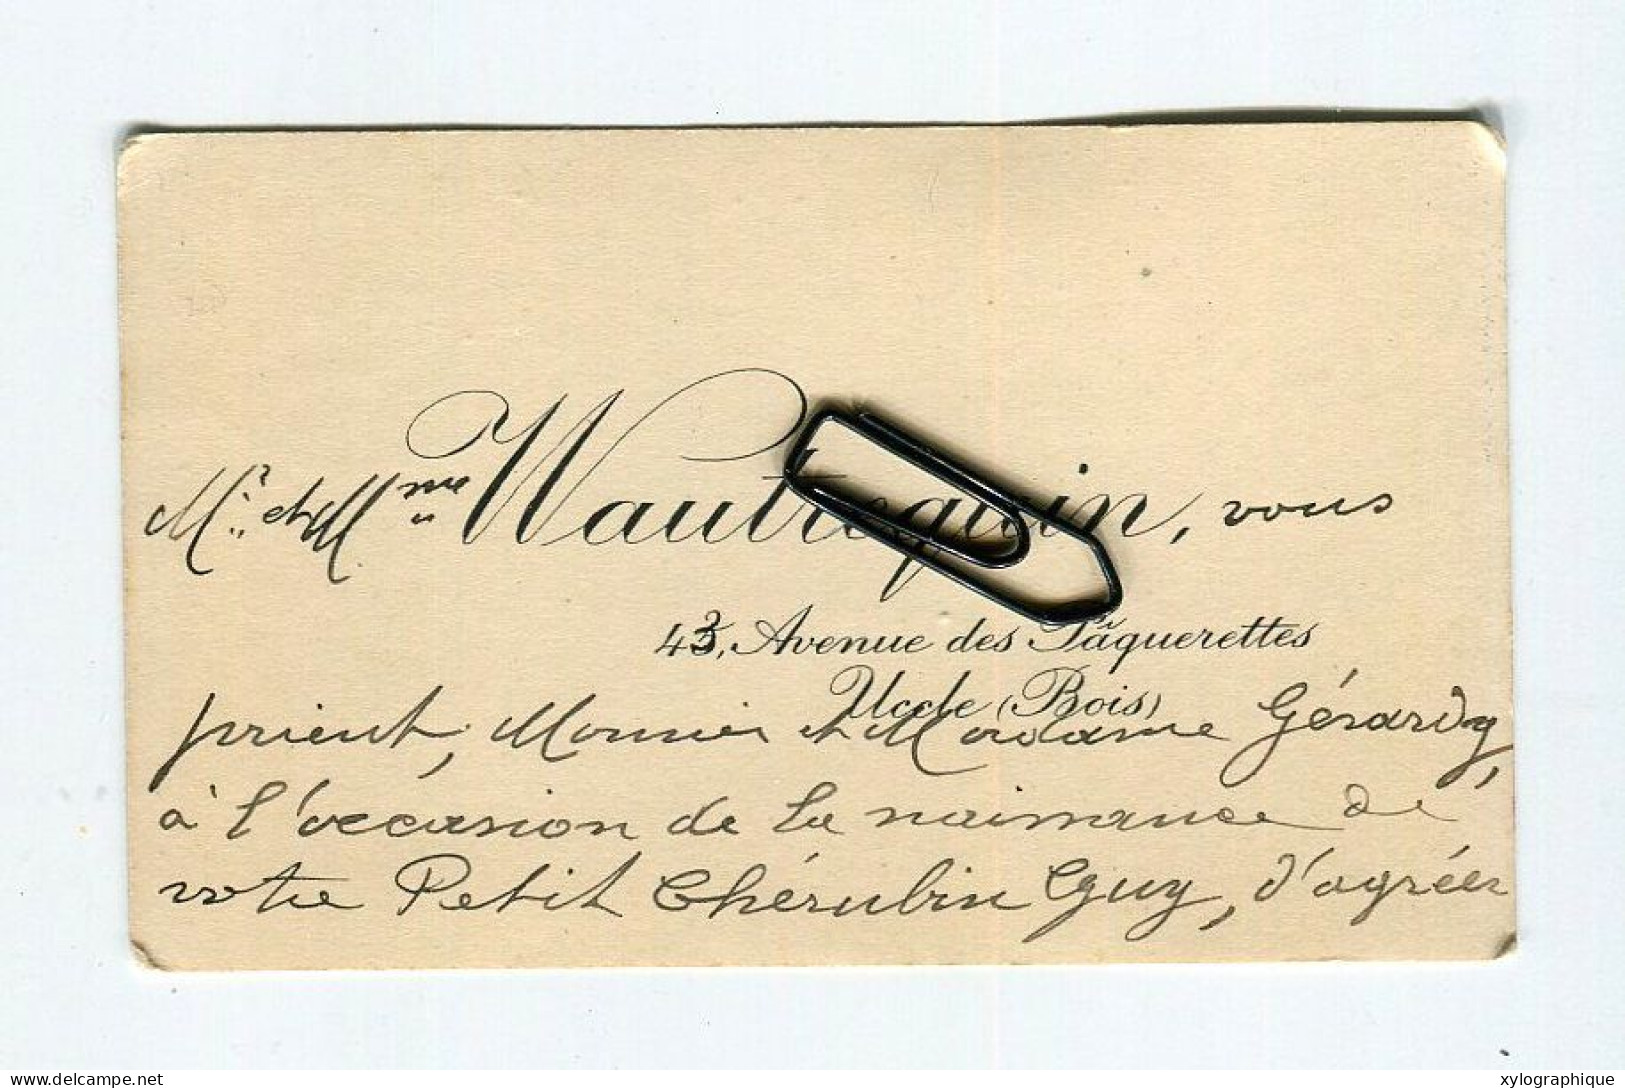 Mr. et Mme Wautrequin, vous
43, Avenue des Pâquerettes
Uccle (Bois)
prient, Monsieur et Madame Gérardy,
à l'occasion de la naissance de
votre Petit Chérubin Guy, d'agréer
delcampe.net
xylographique